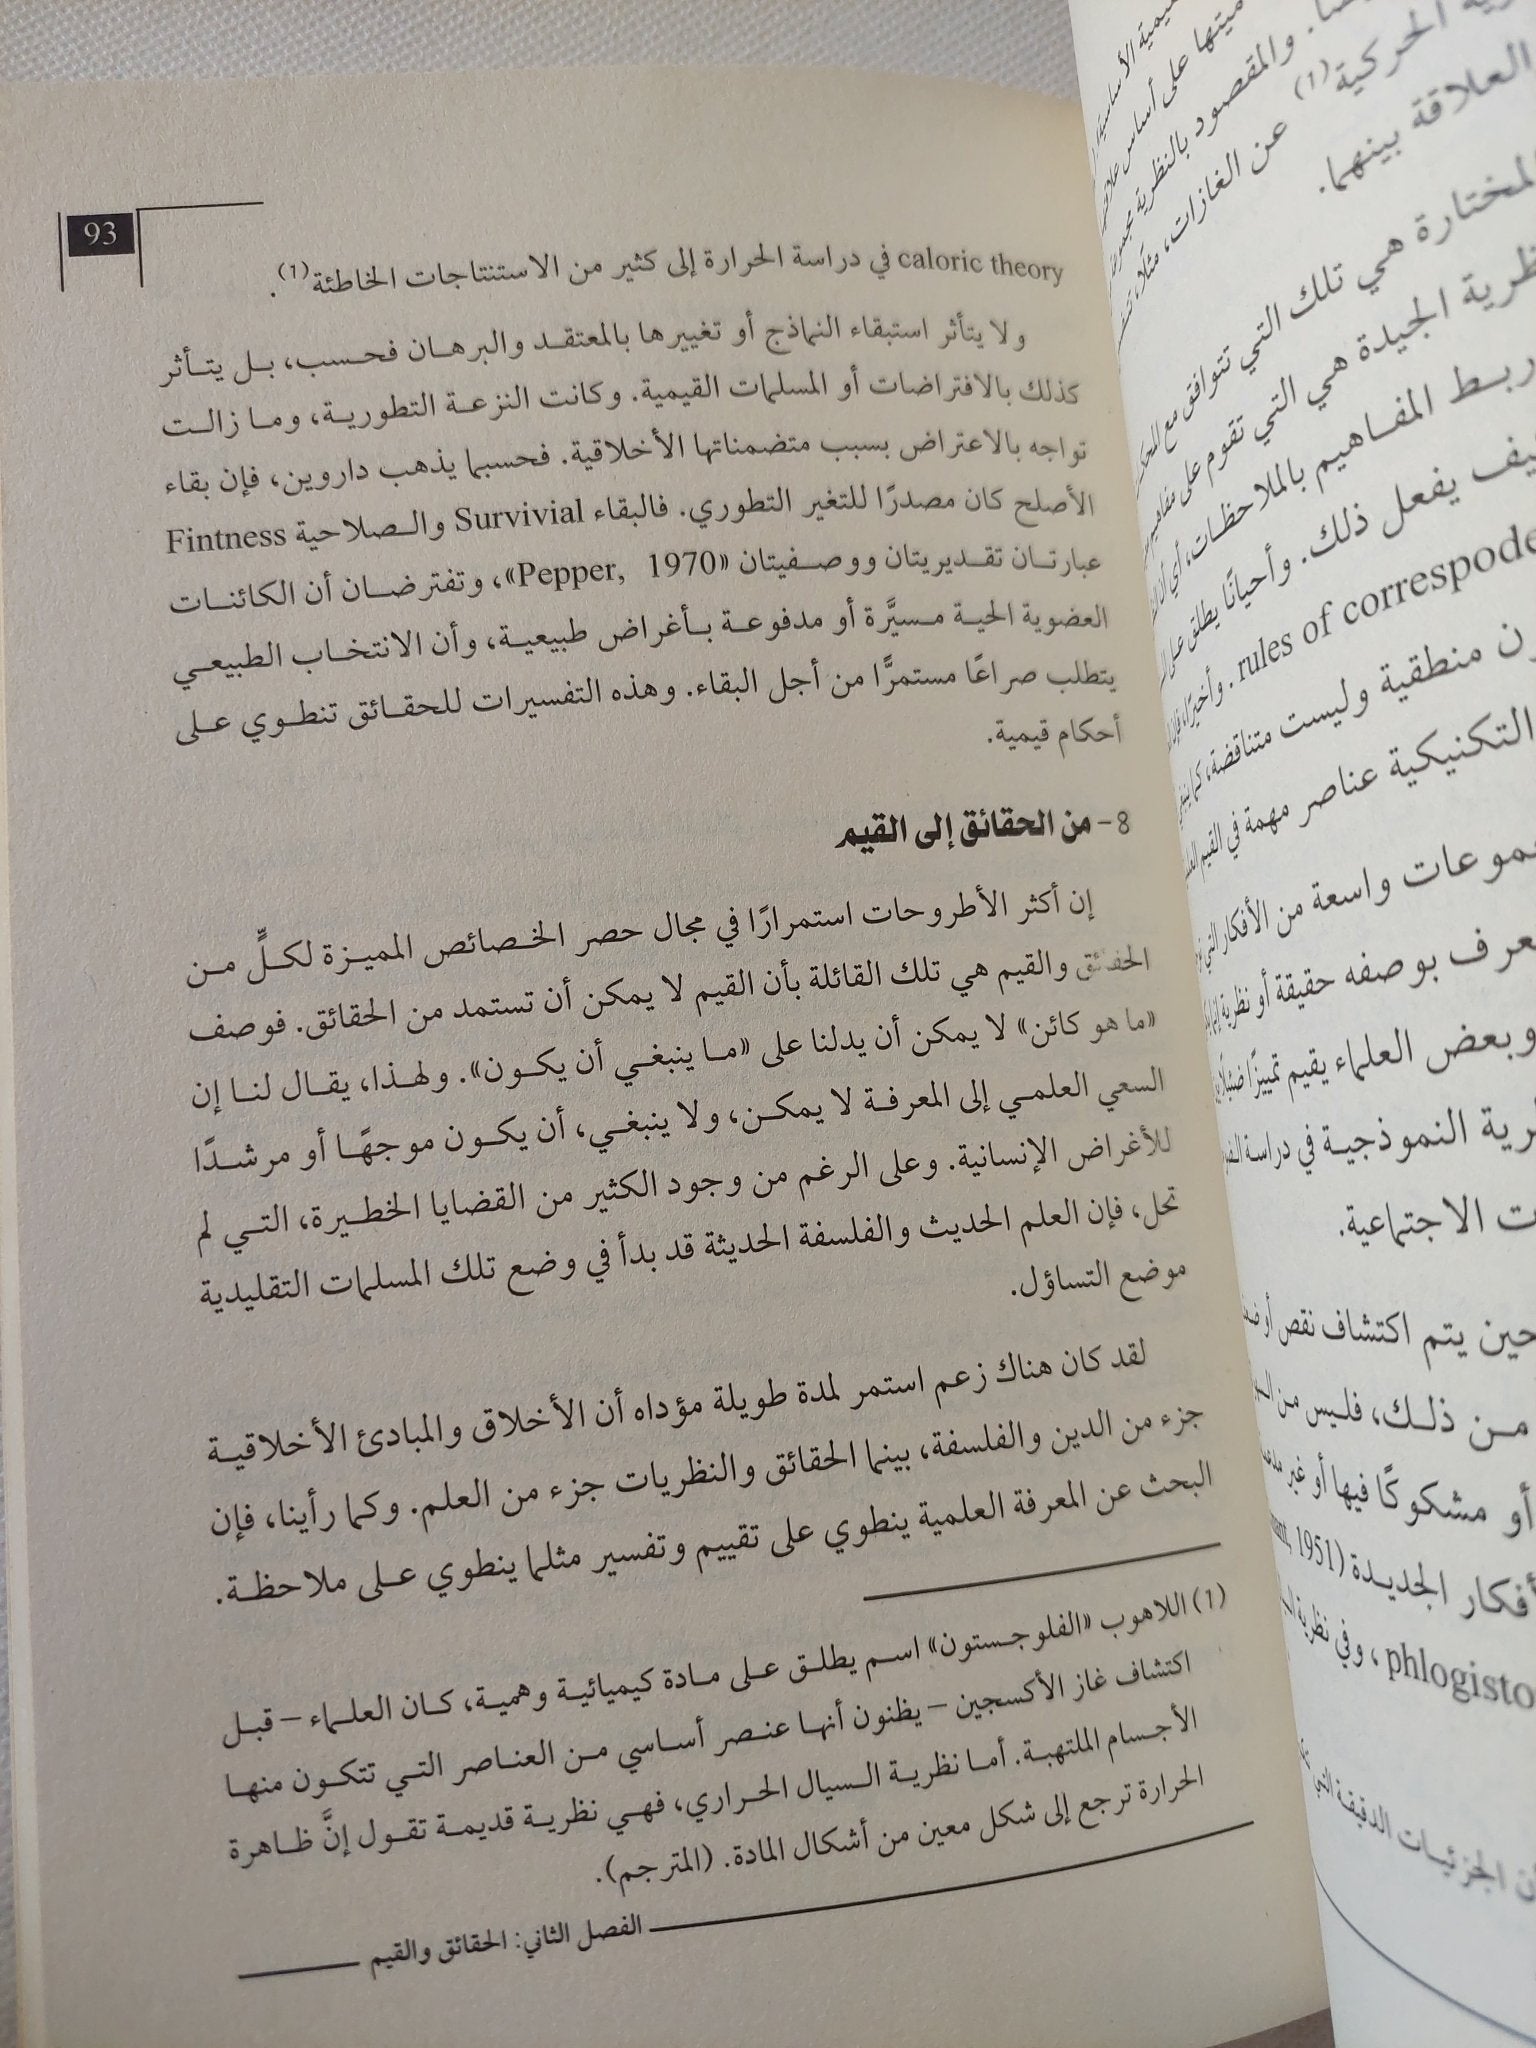 93
caloric theory في دراسة الحرارة إلى كثير من الاستنتاجات الخاطئة(1).
ولا يتأثر استبقاء النماذج أو تغييرها بالمعتقد والبرهان فحسب، بل يتأثر
كذلك بالافتراضات أو المسلمات القيمية. وكانت النزعة التطورية، وما زالت
تواجه بالاعتراض بسبب متضمناتها الأخلاقية. فحسبما يذهب داروين، فإن بقاء
الأصلح كان مصدرًا للتغير التطوري. فالبقاء Survivial والصلاحية Fintness
عبارتان تقديريتان ووصفيتان «Pepper, 1970»، وتفترضان أن الكائنات
العضوية الحية مسيَّرة أو مدفوعة بأغراض طبيعية، وأن الانتخاب الطبيعي
يتطلب صراعًا مستمرًّا من أجل البقاء. وهذه التفسيرات للحقائق تنطوي على
أحكام قيمية.
8- من الحقائق إلى القيم
إن أكثر الأطروحات استمرارًا في مجال حصر الخصائص المميزة لكلٍّ من
الحقائق والقيم هي تلك القائلة بأن القيم لا يمكن أن تستمد من الحقائق. فوصف
«ما هو كائن» لا يمكن أن يدلنا على «ما ينبغي أن يكون». ولهذا، يقال لنا إن
السعي العلمي إلى المعرفة لا يمكن، ولا ينبغي، أن يكون موجهًا أو مرشدًا
للأغراض الإنسانية. وعلى الرغم من وجود الكثير من القضايا الخطيرة، التي لم
تحل، فإن العلم الحديث والفلسفة الحديثة قد بدأ في وضع تلك المسلمات التقليدية
موضع التساؤل.
لقد كان هناك زعم استمر لمدة طويلة مؤداه أن الأخلاق والمبادئ الأخلاقية
جزء من الدين والفلسفة، بينما الحقائق والنظريات جزء من العلم. وكما رأينا، فإن
البحث عن المعرفة العلمية ينطوي على تقييم وتفسير مثلما ينطوي على ملاحظة.
(1) اللاهوب «الفلوجستون» اسم يطلق على مادة كيميائية وهمية، كان العلماء – قبل
اكتشاف غاز الأكسجين – يظنون أنها عنصر أساسي من العناصر التي تتكون منها
الأجسام الملتهبة. أما نظرية السيال الحراري، فهي نظرية قديمة تقول إنَّ ظاهرة
الحرارة ترجع إلى شكل معين من أشكال المادة. (المترجم).
الفصل الثاني: الحقائق والقيم
ميتها على أساس
والمقصود بالنظرية
الحركية(1) عن الغازات، مثلًا،
العلاقة بينهما.
المختارة هي تلك التي تتوافق مع
الجيدة هي التي تقوم على مفاهيم
ربط المفاهيم بالملاحظات، أي أن
يفعل ذلك. وأحيانًا يطلق على
rules of correspode . وأخيرًا،
منطقية وليست متناقضة، كما ينبغي
التكنيكية عناصر مهمة في القيم
واسعة من الأفكار التي
بوصفه حقيقة أو نظرية
وبعض العلماء يقيم تمييزًا ضئيلًا
النموذجية في دراسة
الاجتماعية.
حين يتم اكتشاف نقص أو
من ذلك، فليس من
أو مشكوكًا فيها أو غير
الجديدة (1951
phlogisto ، وفي نظرية
الجزئيات الدقيقة التي